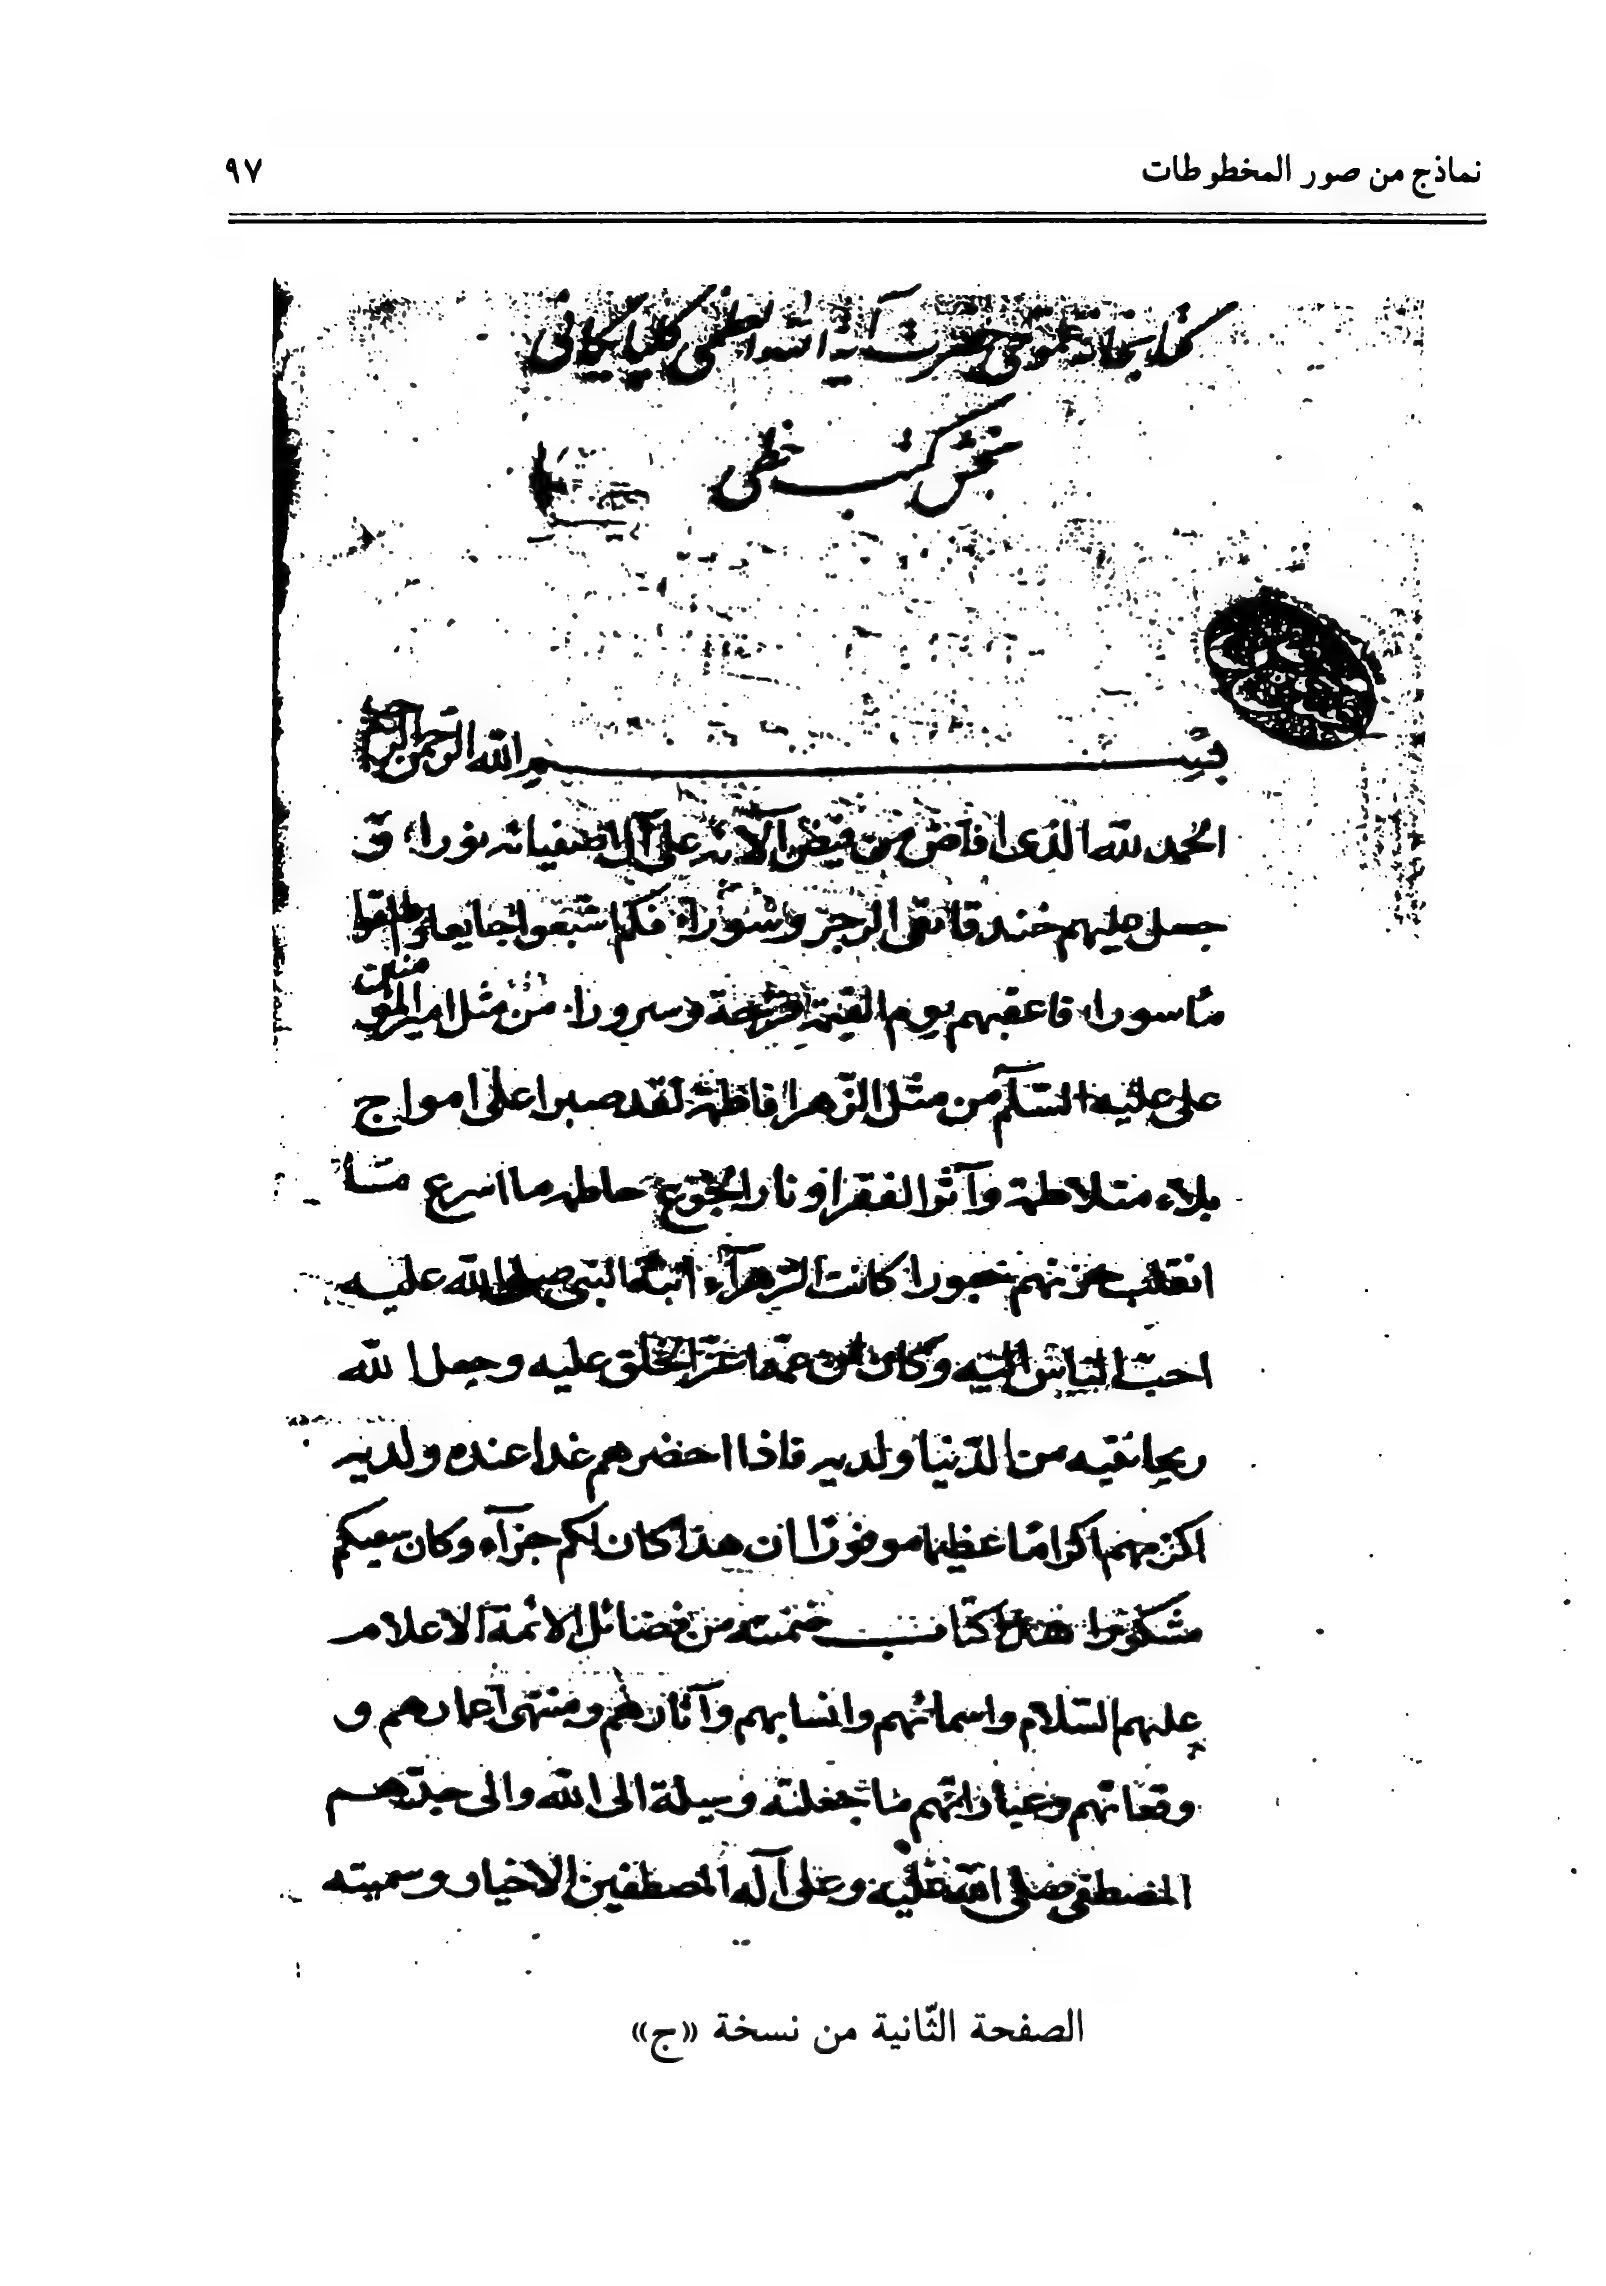 نماذج من صور المخطوطات ٩٧
كتابخانه عمومى حضرت آية الله العظمى گلپايگانى
بخش كتب خطى
بسم الله الرحمن الرحيم
الحمد لله الذى افاض من فيض آلائه على آل اصفيائه نورا، و
جعل عليهم خندقا تقى الرجز وسورا، فكم اشبعوا جايعا و
ماسورا، فاعقبهم يوم القيمة فرحة وسرورا، من مثل امير المؤمنين
على عليه السلام من مثل الزهرا فاطمة لقد صبرا على امواج
بلاء متلاطمة وآثرا الفقرا ونار الجوع حاطمه ما اسرع مسا
انقلب حزنهم حبورا كانت الزهرآء ابنة النبى صلى الله عليه
احبّ الناس اليه وكان ابن عمها اعز الخلق عليه وجعل الله
ريحانتيه من الدّنيا ولديه فاذا احضرهم غدا عنده ولديه
اكرمهم اكراما عظيما موفورا ان هذا كان لكم جزآء وكان سعيكم
مشكورا هذا كتاب ضمنته من فضائل الائمة الاعلام
عليهم السّلام واسمائهم وانسابهم وآثارهم ومنتهى اعمارهم و
وقعاتهم وعباداتهم ما جعلته وسيلة الى الله والى جدّهم
المصطفى صلى الله عليه وعلى آله المصطفين الاخيار وسميته
الصفحة الثّانية من نسخة «ج»